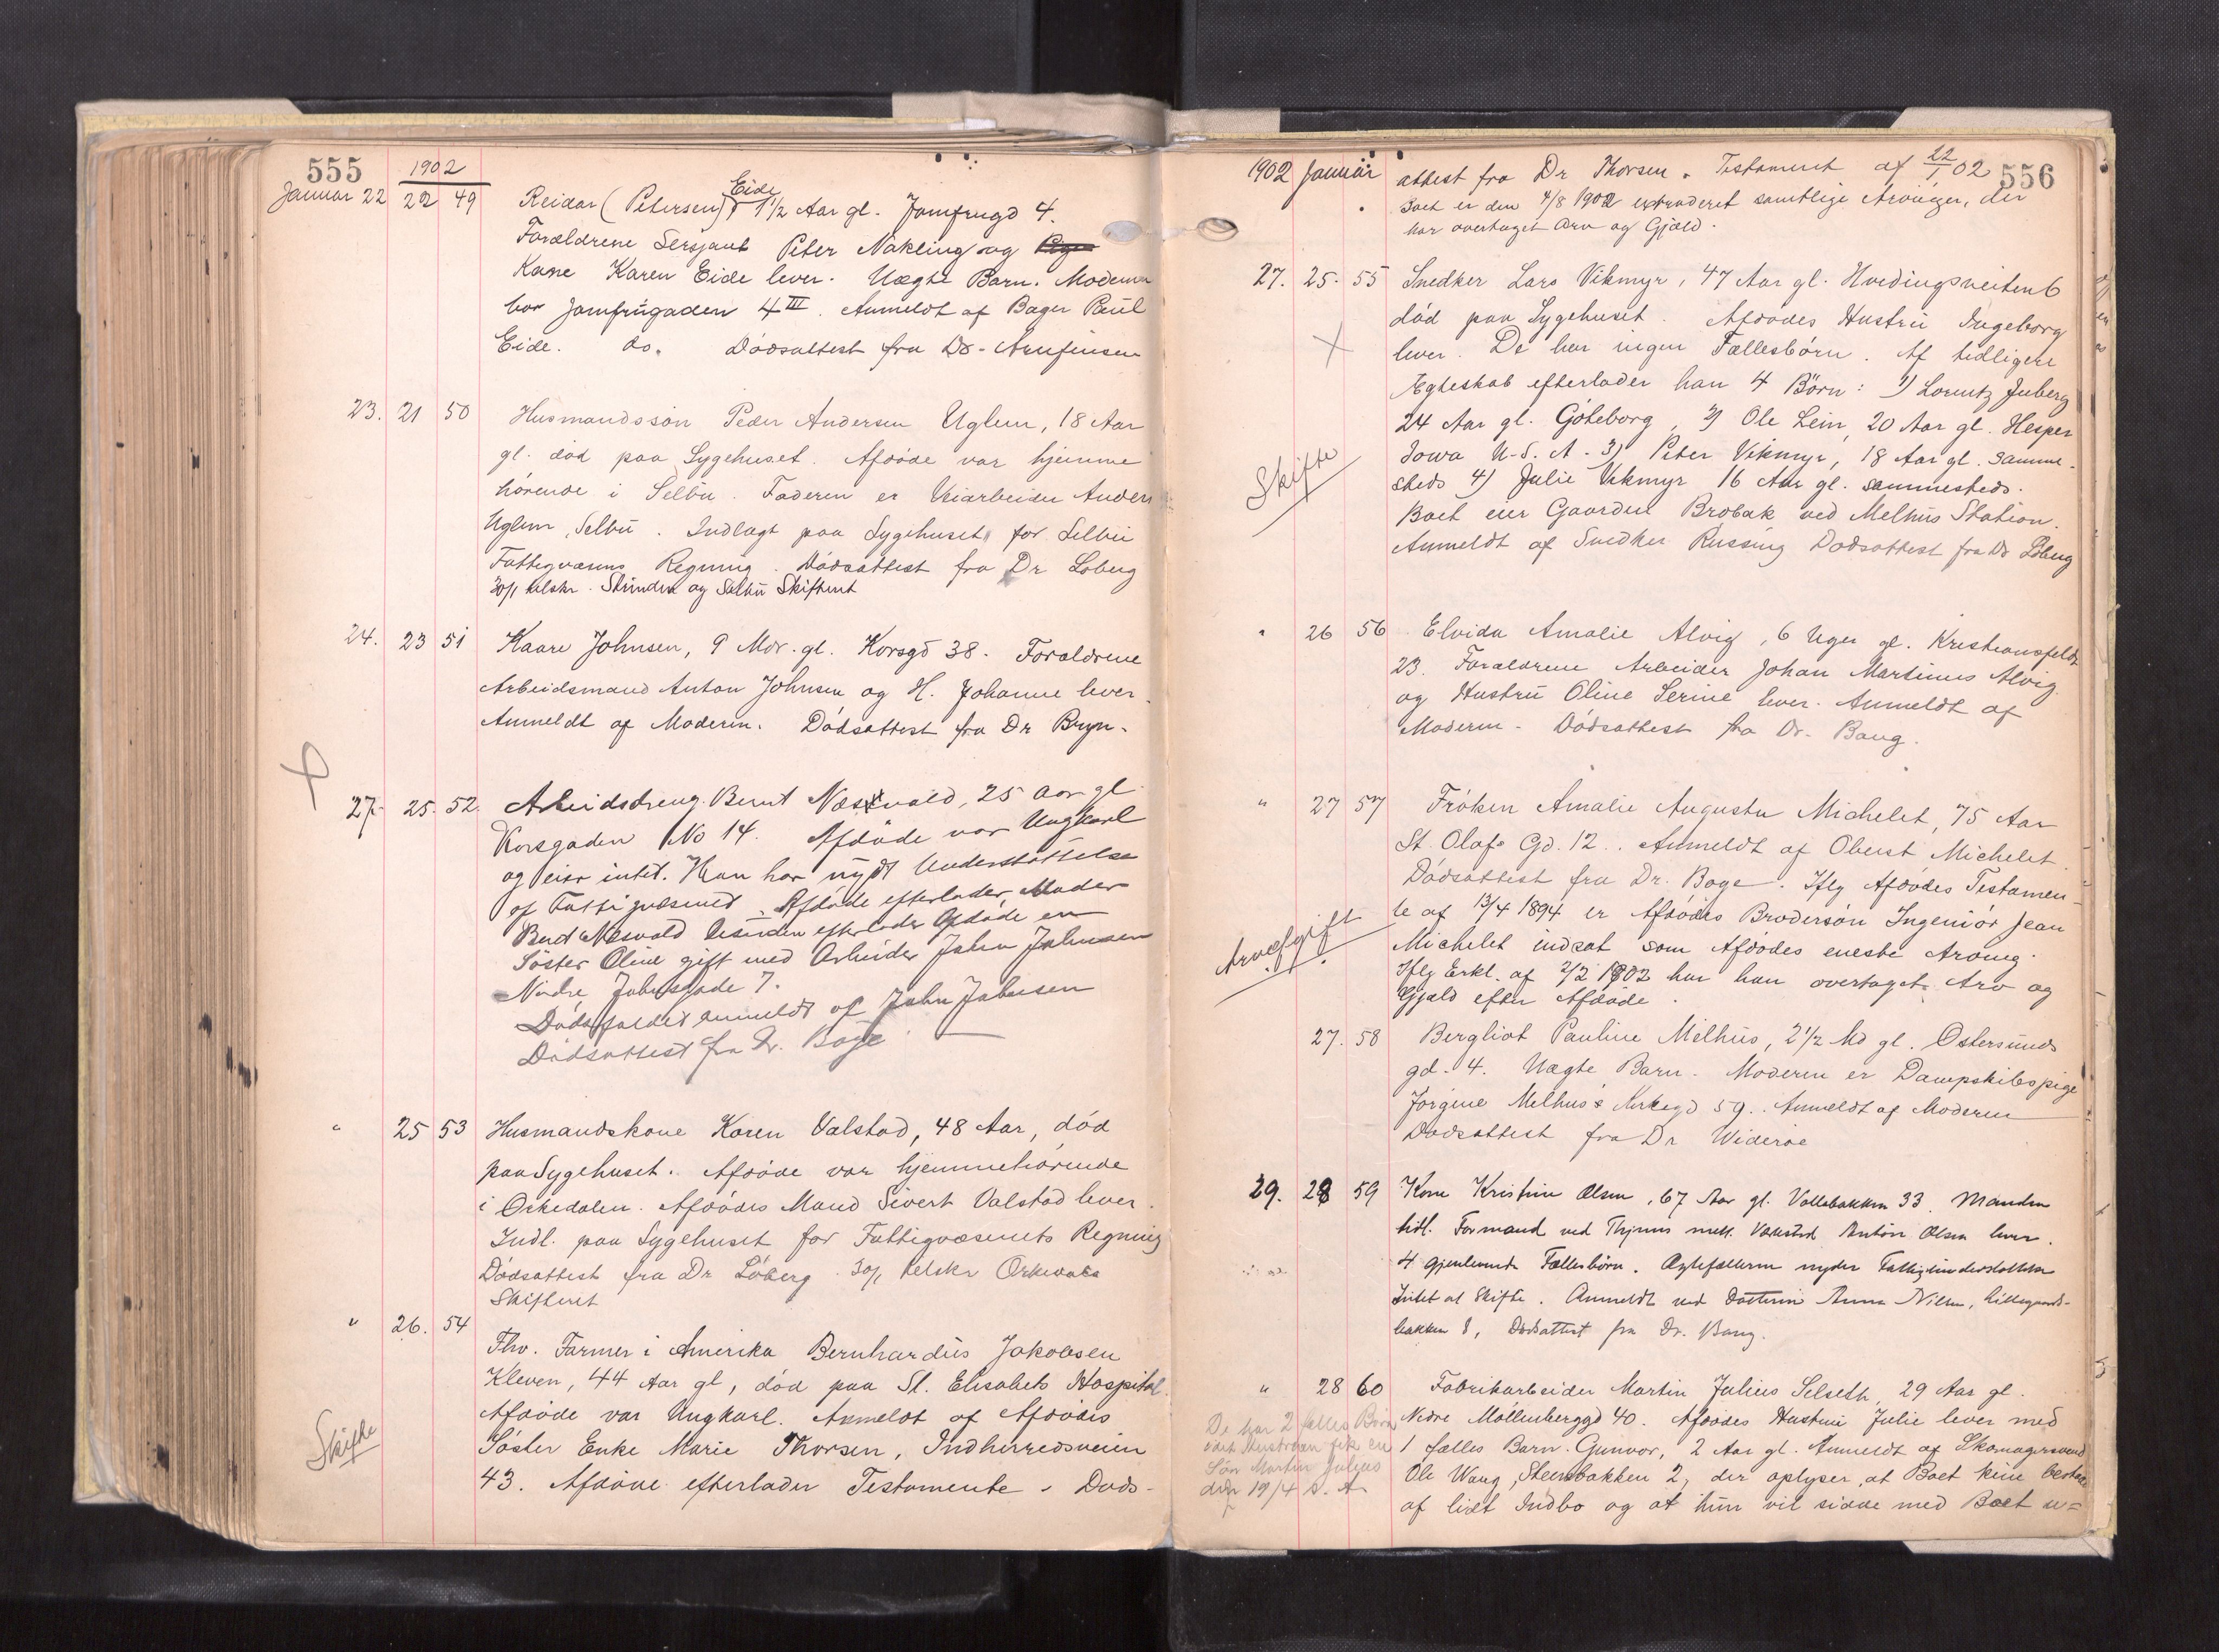 555
1902
Januar 22 22 49 Reidar (Petersen) Eide 1 1/2 Aar gl. Jomfrugd 4.
Forældrene Sersjant Peter Nakling og
Kone Karen Eide lever. Uægte Barn. Moderen
bor Jomfrugaden 4 III. Anmeldt af Bager Paul
Eide. do. Dødsattest fra Dr.
23. 21 50 Husmandssøn Peder Andersen Uglem, 18 Aar
gl. død paa Sygehuset. Afdøde var hjemme
hørende i Selbu. Faderen er Veiarbeider Anders
Uglem, Selbu. Indlagt paa Sygehuset for Selbu
Fattigvæsens Regning. Dødsattest fra Dr Løberg
30/1 tilskr. Strinden og Selbu Skifteret
24. 23 51 Kaare Johnsen, 9 Mdr. gl. Korsgd 38. Forældrene
Arbeidsmand Anton Johnsen og H. Johanne lever.
Anmeldt af Moderen. Dødsattest fra Dr Bryn.
27. 25. 52. Arbeidsdreng Bernt Næsvold, 25 aar gl
Korsgaden No 14. Afdøde var Ungkarl
og eier intet. Han har nydt Understøttelse
af Fattigvæsenet. Afdøde efterlader Moder
Næsvold efterlader Afdøde en
Søster Oline gift med Arbeider John Johnsen
Nedre 7.
Dødsfaldet anmeldt af John Johnsen
Dødsattest fra Dr. Boye
" 25 53 Husmandskone Karen Valstad, 48 Aar, død
paa Sygehuset. Afdøde var hjemmehørende
i Orkedalen. Afdødes Mand Sivert Valstad lever.
Indl. paa Sygehuset for Fattigvæsenets Regning
Dødsattest fra Dr Løberg. 30/1 tilskr Orkedals
Skifteret
" 26. 54
Fhv. Farmer i Amerika Bernhardus Jakobsen
Kleven, 44 Aar gl, død paa St. Elisabets Hospital.
Afdøde var Ungkarl. Anmeldt af Afdødes
Skifte
Søster Enke Marie Thorsen, Indherredsveien
43. Afdøde efterlader Testamente. Døds-
1902 Januar attest fra Dr Thorsen. Testament af 22/1 02 556
Boet er den 4/8 1902 extraderet samtlige Arvinger, der
har overtaget Arv og Gjæld.
27. 25. 55 Snedker Lars Vikmyr, 47 Aar gl. Hvedingsveiten 6
død paa Sygehuset. Afdødes Hustru Ingeborg
lever. De har ingen Fællesbørn. Af tidligere
Ægteskab efterlader han 4 Børn: 1) Lorentz Juberg
24 Aar gl. Göteborg, 2) Ole Lein, 20 Aar gl. Hesper
Iowa U.S.A. 3) Peter Vikmyr, 18 Aar gl. samme-
Skifte
steds 4) Julie Vikmyr 16 Aar gl. sammesteds.
Boet eier Gaarden Brobak ved Melhus Station.
Anmeldt af Snedker Russing Dødsattest fra Dr Løberg
" 26 56 Elvida Amalie Alvig, 6 Uger gl. Kristiansfeldt
23. Forældrene Arbeider Johan Martinus Alvig
og Hustru Oline Serine lever. Anmeldt af
Moderen. Dødsattest fra Dr. Bang.
" 27 57 Frøken Amalie Augusta Michelet, 75 Aar
St. Olafs Gd. 12. Anmeldt af Oberst Michelet
Dødsattest fra Dr. Boye. Iflg Afdødes Testamen-
te af 13/4 1894 er Afdødes Brodersøn Ingeniør Jean
Arveafgift
Michelet indsat som Afdødes eneste Arving.
Iflg Erkl. af 2/2 1902 har han overtaget Arv og
Gjæld efter Afdøde.
27. 58 Bergliot Pauline Melhus, 2 1/2 Md gl. Østersunds
gd. 4. Uægte Barn. Moderen er Dampskibspige
Jørgine Melhus, Kirkegd 59. Anmeldt af Moderen
Dødsattest fra Dr Widerøe
29. 28 59 Kone Kristine Olsen, 67 Aar gl. Vollabakken 33. Manden
tidl. Formand ved Thjems mek. Værksted Anton Olsen lever.
4 gjenlevende Fællesbørn. Ægtefællerne nyder Fattigunderstøttelse
Intet at Skifte. Anmeldt ved Datteren Anna Nilsen, Lillegaards-
bakken 8, Dødsattest fra Dr. Bang.
" 28 60 Fabrikarbeider Martin Julius Selseth, 29 Aar gl.
Nedre Møllenberggd 40. Afdødes Hustru Julie lever med
1 fælles Barn. Gunvor, 2 Aar gl. Anmeldt af Skomagersvend
Ole Wang, Steensbakken 2, der oplyser, at Boet kun bestaar
af lidt Indbo og at hun vil sidde med Boet u=
De har 2 fælles Børn
idet Hustruen fik en
Søn Martin Julius
19/4 d. A.